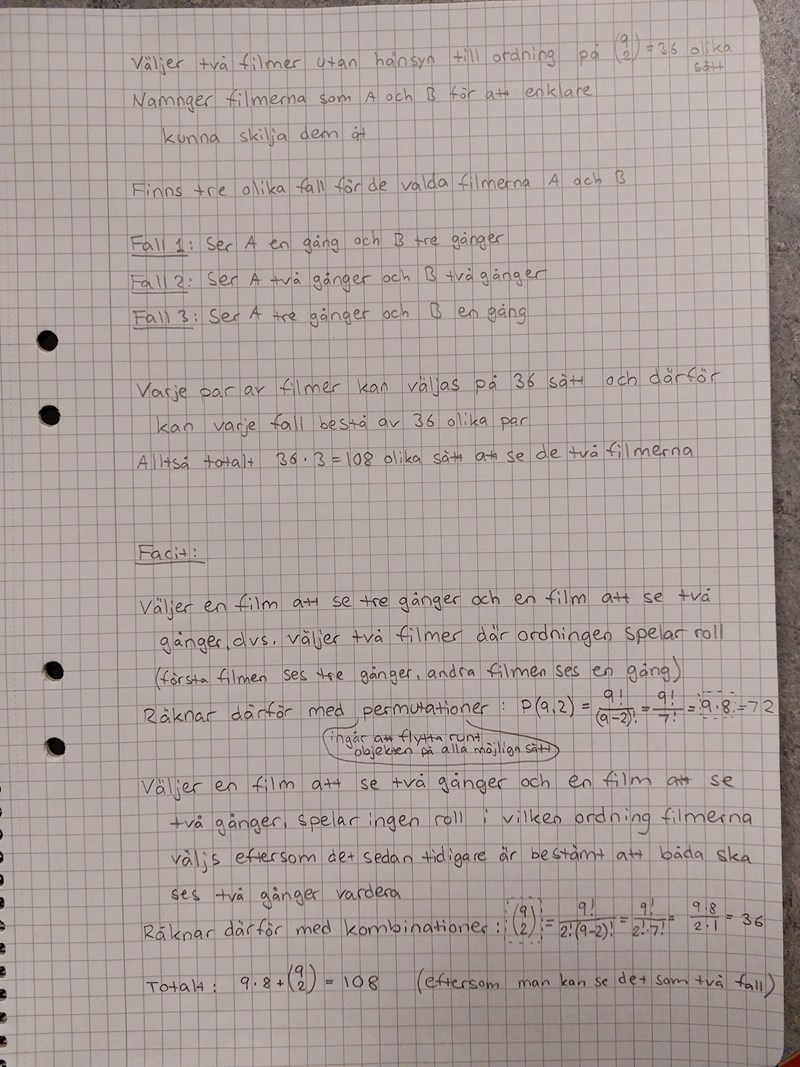 Väljer två filmer utan hänsyn till ordning på (9 2) = 36 olika
sätt
Namnger filmerna som A och B för att enklare
kunna skilja dem åt
Finns tre olika fall för de valda filmerna A och B
Fall 1: Ser A en gång och B tre gånger
Fall 2: Ser A två gånger och B två gånger
Fall 3: Ser A tre gånger och B en gång
Varje par av filmer kan väljas på 36 sätt och därför
kan varje fall bestå av 36 olika par
Alltså totalt 36 · 3 = 108 olika sätt att se de två filmerna
Facit:
Väljer en film att se tre gånger och en film att se två
gånger, dvs. väljer två filmer där ordningen spelar roll
(första filmen ses tre gånger, andra filmen ses en gång)
Räknar därför med permutationer: P(9,2) = 9!/(9-2)! = 9!/7! = 9·8 = 72
ingår att flytta runt
objekten på alla möjliga sätt
Väljer en film att se två gånger och en film att se
två gånger, spelar ingen roll i vilken ordning filmerna
väljs eftersom det sedan tidigare är bestämt att båda ska
ses två gånger vardera
Räknar därför med kombinationer: (9 2) = 9!/2!(9-2)! = 9!/2!·7! = 9·8/2·1 = 36
Totalt: 9·8+(9 2) = 108 (eftersom man kan se det som två fall)